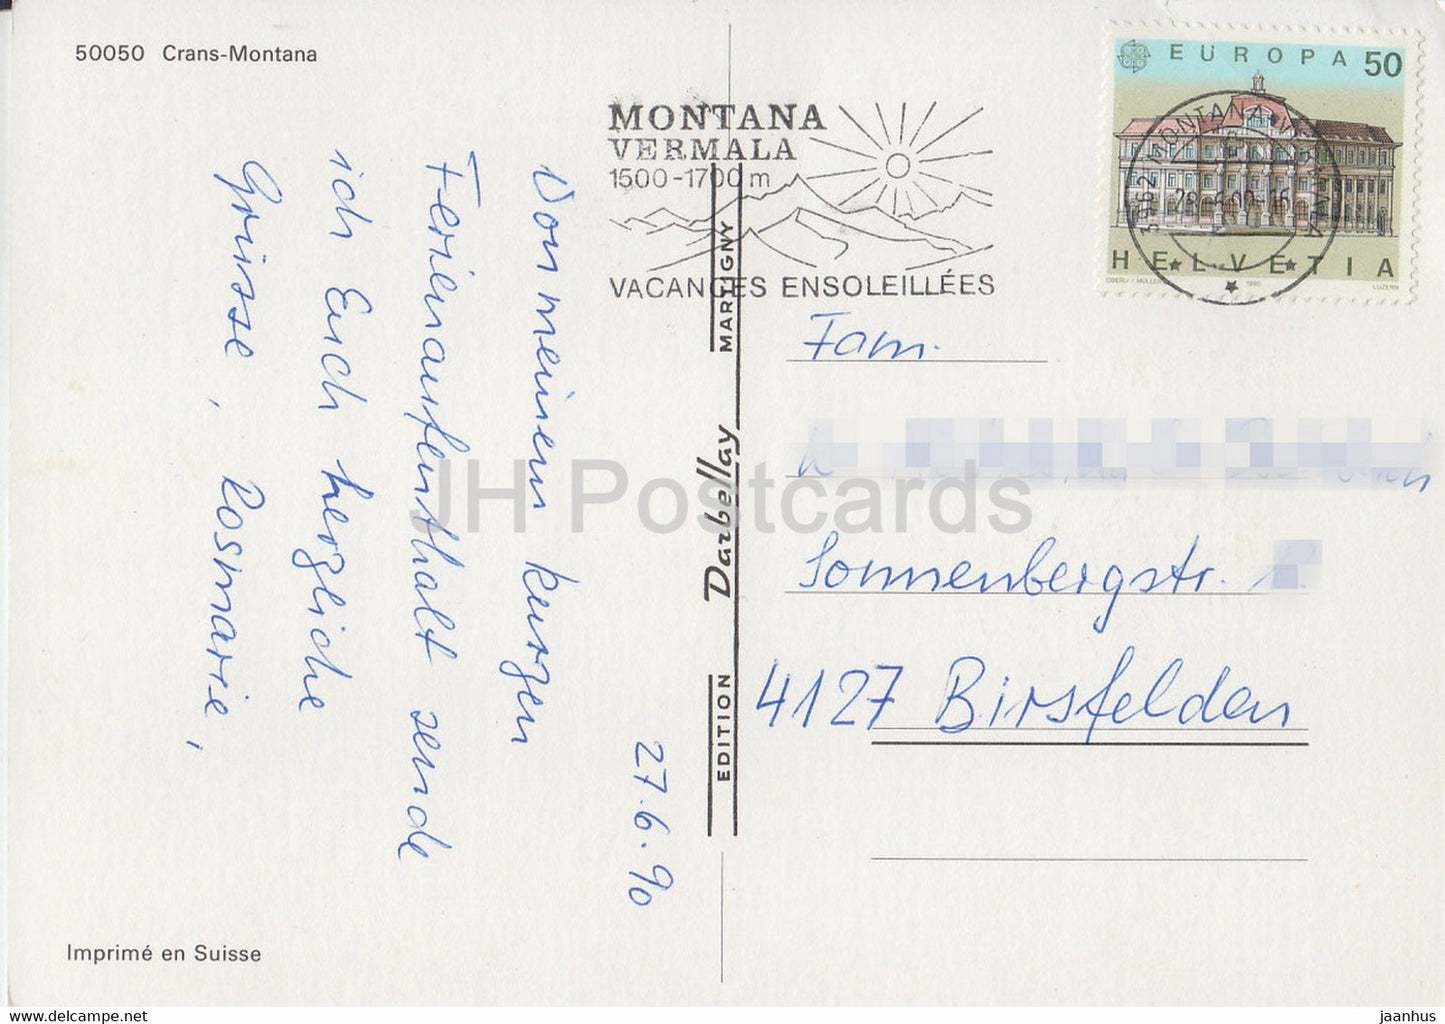 50050 Crans-Montana
Von meinem kurzen
Ferienaufenthalt sende
ich Euch herzliche
Grüsse, Rosmarie,
27.6.90
Imprimé en Suisse
EDITION Darbellay MARTIGNY
MONTANA
VERMALA
1500-1700 m
VACANCES ENSOLEILLÉES
EUROPA 50
HELVETIA
OBERLI / MÜLLER 1990 LUZERN
3962 MONTANA-VERMALA
Fam.
Sonnenbergstr.
4127 Birsfelden
JH Postcards
jaanhus